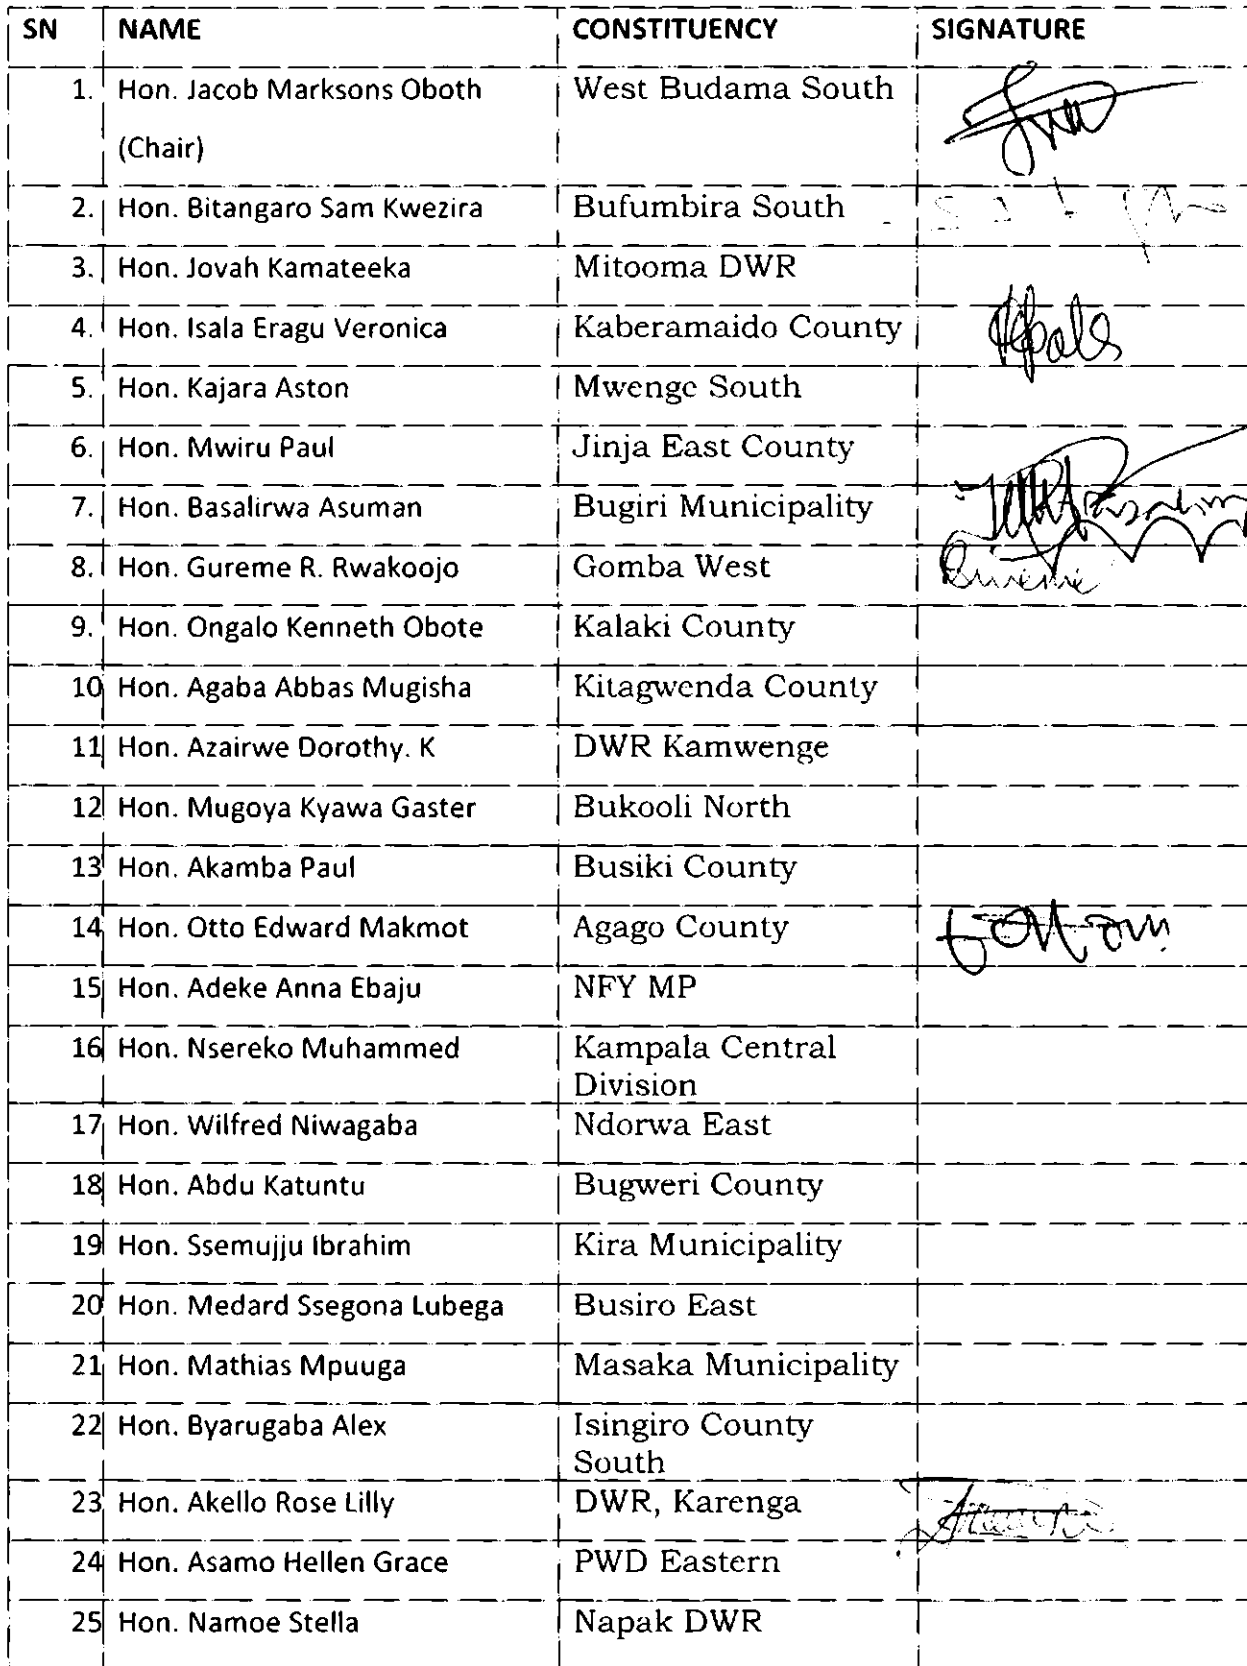 SN NAME CONSTITUENCY SIGNATURE
1. Hon. Jacob Marksons Oboth West Budama South
(Chair)
2. Hon. Bitangaro Sam Kwezira Bufumbira South
3. Hon. Jovah Kamateeka Mitooma DWR
4. Hon. Isala Eragu Veronica Kaberamaido County
5. Hon. Kajara Aston Mwenge South
6. Hon. Mwiru Paul Jinja East County
7. Hon. Basalirwa Asuman Bugiri Municipality
8. Hon. Gureme R. Rwakoojo Gomba West
9. Hon. Ongalo Kenneth Obote Kalaki County
10 Hon. Agaba Abbas Mugisha Kitagwenda County
11 Hon. Azairwe Dorothy. K DWR Kamwenge
12 Hon. Mugoya Kyawa Gaster Bukooli North
13 Hon. Akamba Paul Busiki County
14 Hon. Otto Edward Makmot Agago County
15 Hon. Adeke Anna Ebaju NFY MP
16 Hon. Nsereko Muhammed Kampala Central
Division
17 Hon. Wilfred Niwagaba Ndorwa East
18 Hon. Abdu Katuntu Bugweri County
19 Hon. Ssemujju Ibrahim Kira Municipality
20 Hon. Medard Ssegona Lubega Busiro East
21 Hon. Mathias Mpuuga Masaka Municipality
22 Hon. Byarugaba Alex Isingiro County
South
23 Hon. Akello Rose Lilly DWR, Karenga
24 Hon. Asamo Hellen Grace PWD Eastern
25 Hon. Namoe Stella Napak DWR